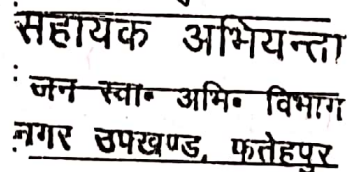 सहायक अभियन्ता
जन स्वा॰ अभि॰ विभाग
नगर उपखण्ड, फतेहपुर